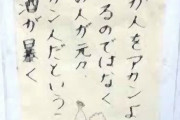 が人をアカンよ
るのではなく
人が元々
カン人だという
酒が暴く